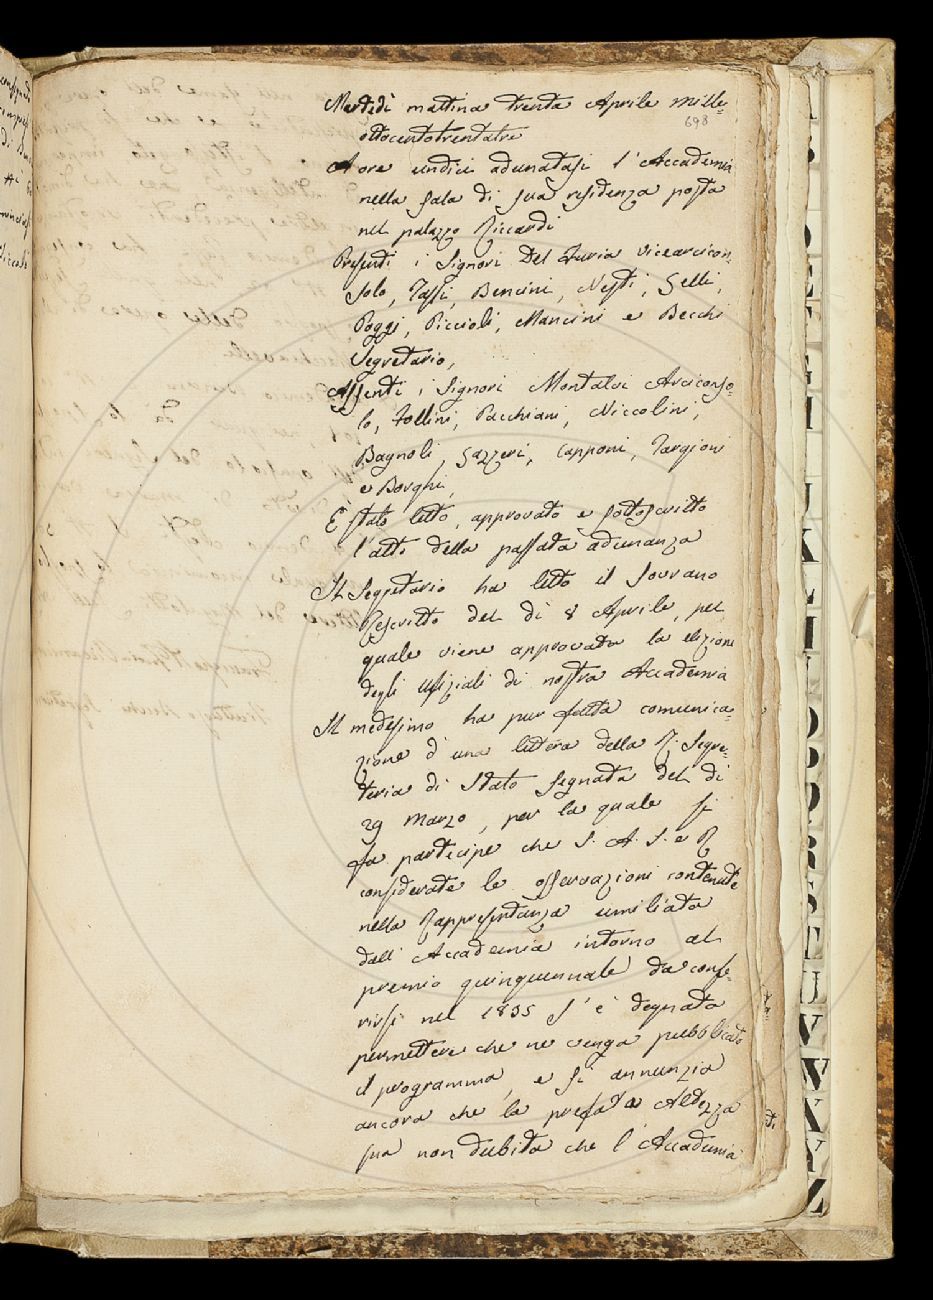 Martedì mattina trenta Aprile mille=
698
ottocentotrentatre
A ore undici adunatasi l'Accademia
nella sala di sua residenza posta
nel palazzo Riccardi
Presenti i Signori Del Furia Vicearcicon=
solo, Tassi, Bencini, Nesti, Gelli,
Poggi, Piccioli, Mancini e Becchi
Segretario,
Assenti i Signori Montalvi Arciconso=
lo, Follini, Pacchiani, Niccolini,
Bagnoli, Gazzeri, Capponi, Targioni
e Borghi,
È stato letto, approvato e sottoscritto
l'atto della passata adunanza
Il Segretario ha letto il Sovrano
Rescritto del dì 8 Aprile, pel
quale viene approvata la elezione
degli Ufiziali di nostra Accademia
Il medesimo ha pur fatta comunica=
zione d'una lettera della R. Segre=
teria di Stato segnata del dì
29 Marzo, per la quale si
fa partecipe che S. A. I. e R
considerate le osservazioni contenute
nella Rappresentanza umiliata
dall'Accademia intorno al
premio quinquennale da confe=
rirsi nel 1835 s'è degnata
permettere che ne venga pubblicato
il programma, e si annunzia
ancora che la prefata Altezza
sua non dubita che l'Accademia